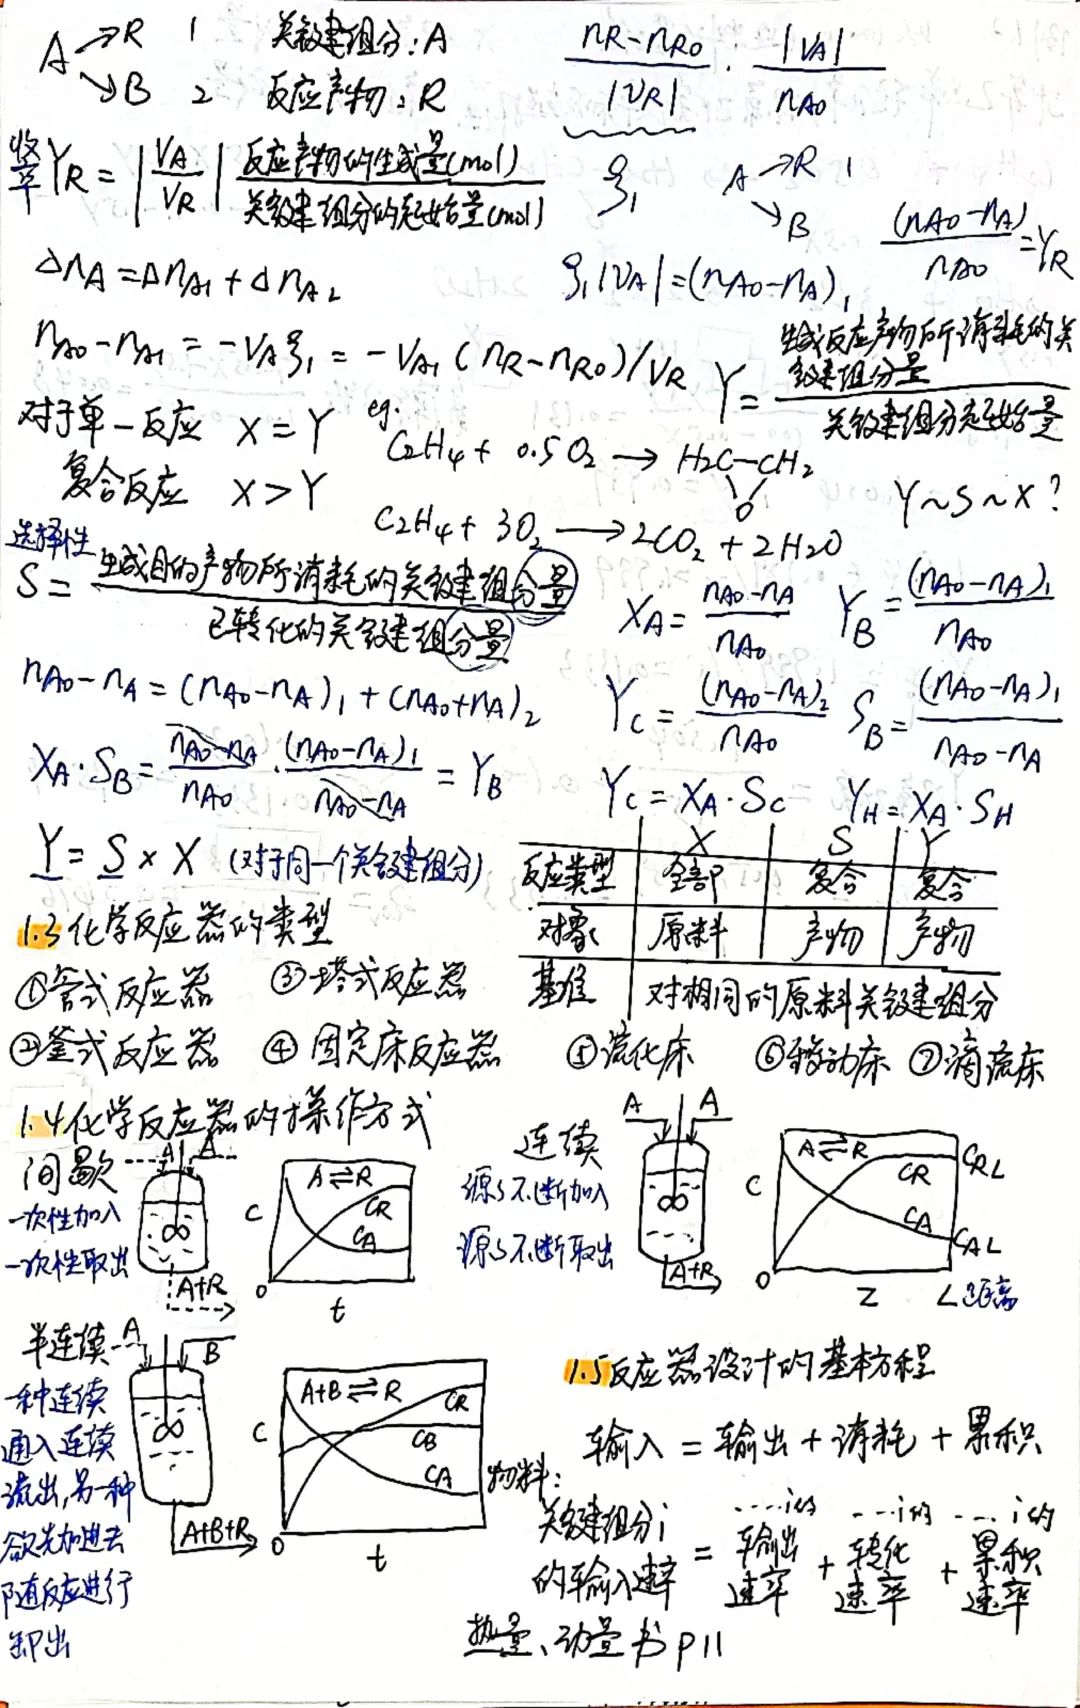 A → R 1 关键组分：A
→ B 2 反应产物：R
nR-nR0 / |VR| · |VA| / nA0
收率 YR = |VA/VR| 反应产物的生成量(mol) / 关键组分的起始量(mol)
ξ1 A → R 1
→ B
(nA0-nA) / nA0 = YR
ΔnA = ΔnA1 + ΔnA2
ξ1|VA| = (nA0-nA)1
nA0-nA1 = -VAξ1 = -VA1 (nR-nR0)/VR
Y = 生成反应产物所消耗的关键组分量 / 关键组分起始量
对于单一反应 X = Y
复合反应 X > Y
eg. C2H4 + 0.5O2 → H2C-CH2
O
C2H4 + 3O2 → 2CO2 + 2H2O
Y~S~X?
选择性
S = 生成目的产物所消耗的关键组分量 / 已转化的关键组分量
XA = nA0-nA / nA0 YB = (nA0-nA)1 / nA0
nA0-nA = (nA0-nA)1 + (nA0+nA)2
YC = (nA0-nA)2 / nA0 SB = (nA0-nA)1 / nA0-nA
XA·SB = nA0-nA / nA0 · (nA0-nA)1 / nA0-nA = YB
YC = XA·SC YH = XA·SH
Y = S × X (对于同一个关键组分)
X S Y
反应类型 全部 复合 复合
对象 原料 产物 产物
基准 对相同的原料关键组分
1.3 化学反应器的类型
①管式反应器 ③塔式反应器
②釜式反应器 ④固定床反应器 ⑤流化床 ⑥移动床 ⑦滴流床
1.4 化学反应器的操作方式
间歇
一次性加入
一次性取出
A A
A+R
C A⇌R
CR
CA
0 t
连续
源源不断加入
源源不断取出
A A
A+R
C A⇌R
CR CRL
CA CAL
0 Z L 距离
半连续
一种连续
通入连续
流出,另一种
欲先加进去
随反应进行
卸出
A B
A+B+R
C A+B⇌R
CR
CB
CA
0 t
1.5 反应器设计的基本方程
输入 = 输出 + 消耗 + 累积
物料：
关键组分i的输入速率 = ……i的输出速率 + …i的转化速率 + …i的累积速率
热量、动量书P11